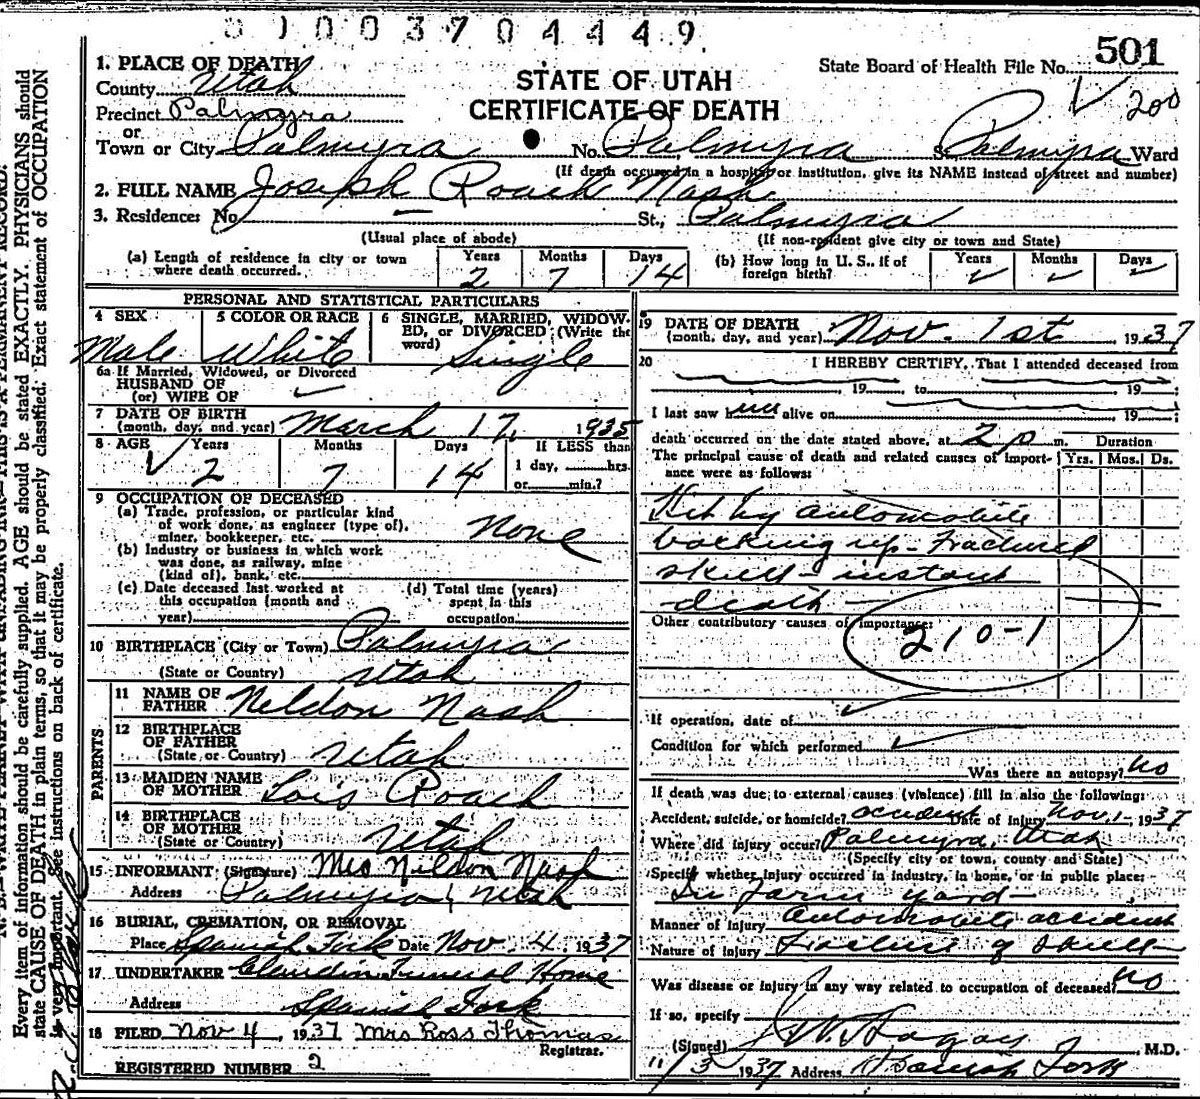 0 1 0 0 3 7 0 4 4 4 9
State Board of Health File No. 501
200
STATE OF UTAH
CERTIFICATE OF DEATH
1. PLACE OF DEATH
County Utah
Precinct Palmyra
or
Town or City Palmyra No. Palmyra S Palmyra Ward
(If death occurred in a hospital or institution, give its NAME instead of street and number)
2. FULL NAME Joseph Roach Nash
3. Residence: No. — St., Palmyra
(Usual place of abode) (If non-resident give city or town and State)
(a) Length of residence in city or town where death occurred. Years 2 Months 7 Days 14
(b) How long in U. S., if of foreign birth? Years ✓ Months ✓ Days ✓
PERSONAL AND STATISTICAL PARTICULARS
4 SEX Male
5 COLOR OR RACE White
6 SINGLE, MARRIED, WIDOWED, or DIVORCED (Write the word) Single
6a If Married, Widowed, or Divorced
HUSBAND OF
(or) WIFE OF
7 DATE OF BIRTH
(month, day, and year) March 17, 1935
8 AGE Years 2 Months 7 Days 14 If LESS than 1 day, hrs. or min.?
9 OCCUPATION OF DECEASED
(a) Trade, profession, or particular kind of work done, as engineer (type of), miner, bookkeeper, etc. None
(b) Industry or business in which work was done, as railway, mine (kind of), bank, etc.
(c) Date deceased last worked at this occupation (month and year)
(d) Total time (years) spent in this occupation
10 BIRTHPLACE (City or Town) Palmyra
(State or Country) Utah
PARENTS
11 NAME OF FATHER Neldon Nash
12 BIRTHPLACE OF FATHER
(State or Country) Utah
13 MAIDEN NAME OF MOTHER Lois Roach
14 BIRTHPLACE OF MOTHER
(State or Country) Utah
15 INFORMANT: (Signature) Mrs Nildon Nash
Address Palmyra, Utah
16 BURIAL, CREMATION, OR REMOVAL
Place Spanish Fork Date Nov. 4, 1937
17 UNDERTAKER Claudin Funeral Home
Address Spanish Fork
18 FILED Nov 4, 1937 Mrs Ross Thomas
Registrar.
REGISTERED NUMBER 2
19 DATE OF DEATH
(month, day, and year) Nov. 1st, 1937
20 I HEREBY CERTIFY, That I attended deceased from
19 to 19
I last saw h alive on 19
death occurred on the date stated above, at 2 p m.
Duration
Yrs. Mos. Ds.
The principal cause of death and related causes of importance were as follows:
Hit by automobile
backing up - Fractured
skull - instant
death -
Other contributory causes of importance:
210-1
If operation, date of ✓
Condition for which performed ✓
Was there an autopsy? no
If death was due to external causes (violence) fill in also the following:
Accident, suicide, or homicide? accident Date of Injury Nov. 1 - 1937
Where did injury occur? Palmyra, Utah
(Specify city or town, county and State)
Specify whether injury occurred in industry, in home, or in public place:
In farm yard -
Manner of Injury Automobile accident
Nature of Injury Fracture of skull
Was disease or injury in any way related to occupation of deceased? no
If so, specify
(Signed) J. W. Hagan, M.D.
11/3 1937 Address Spanish Fork
Every item of information should be carefully supplied. AGE should be stated EXACTLY. PHYSICIANS should
state CAUSE OF DEATH in plain terms, so that it may be properly classified. Exact statement of OCCUPATION
is very important. See instructions on back of certificate.